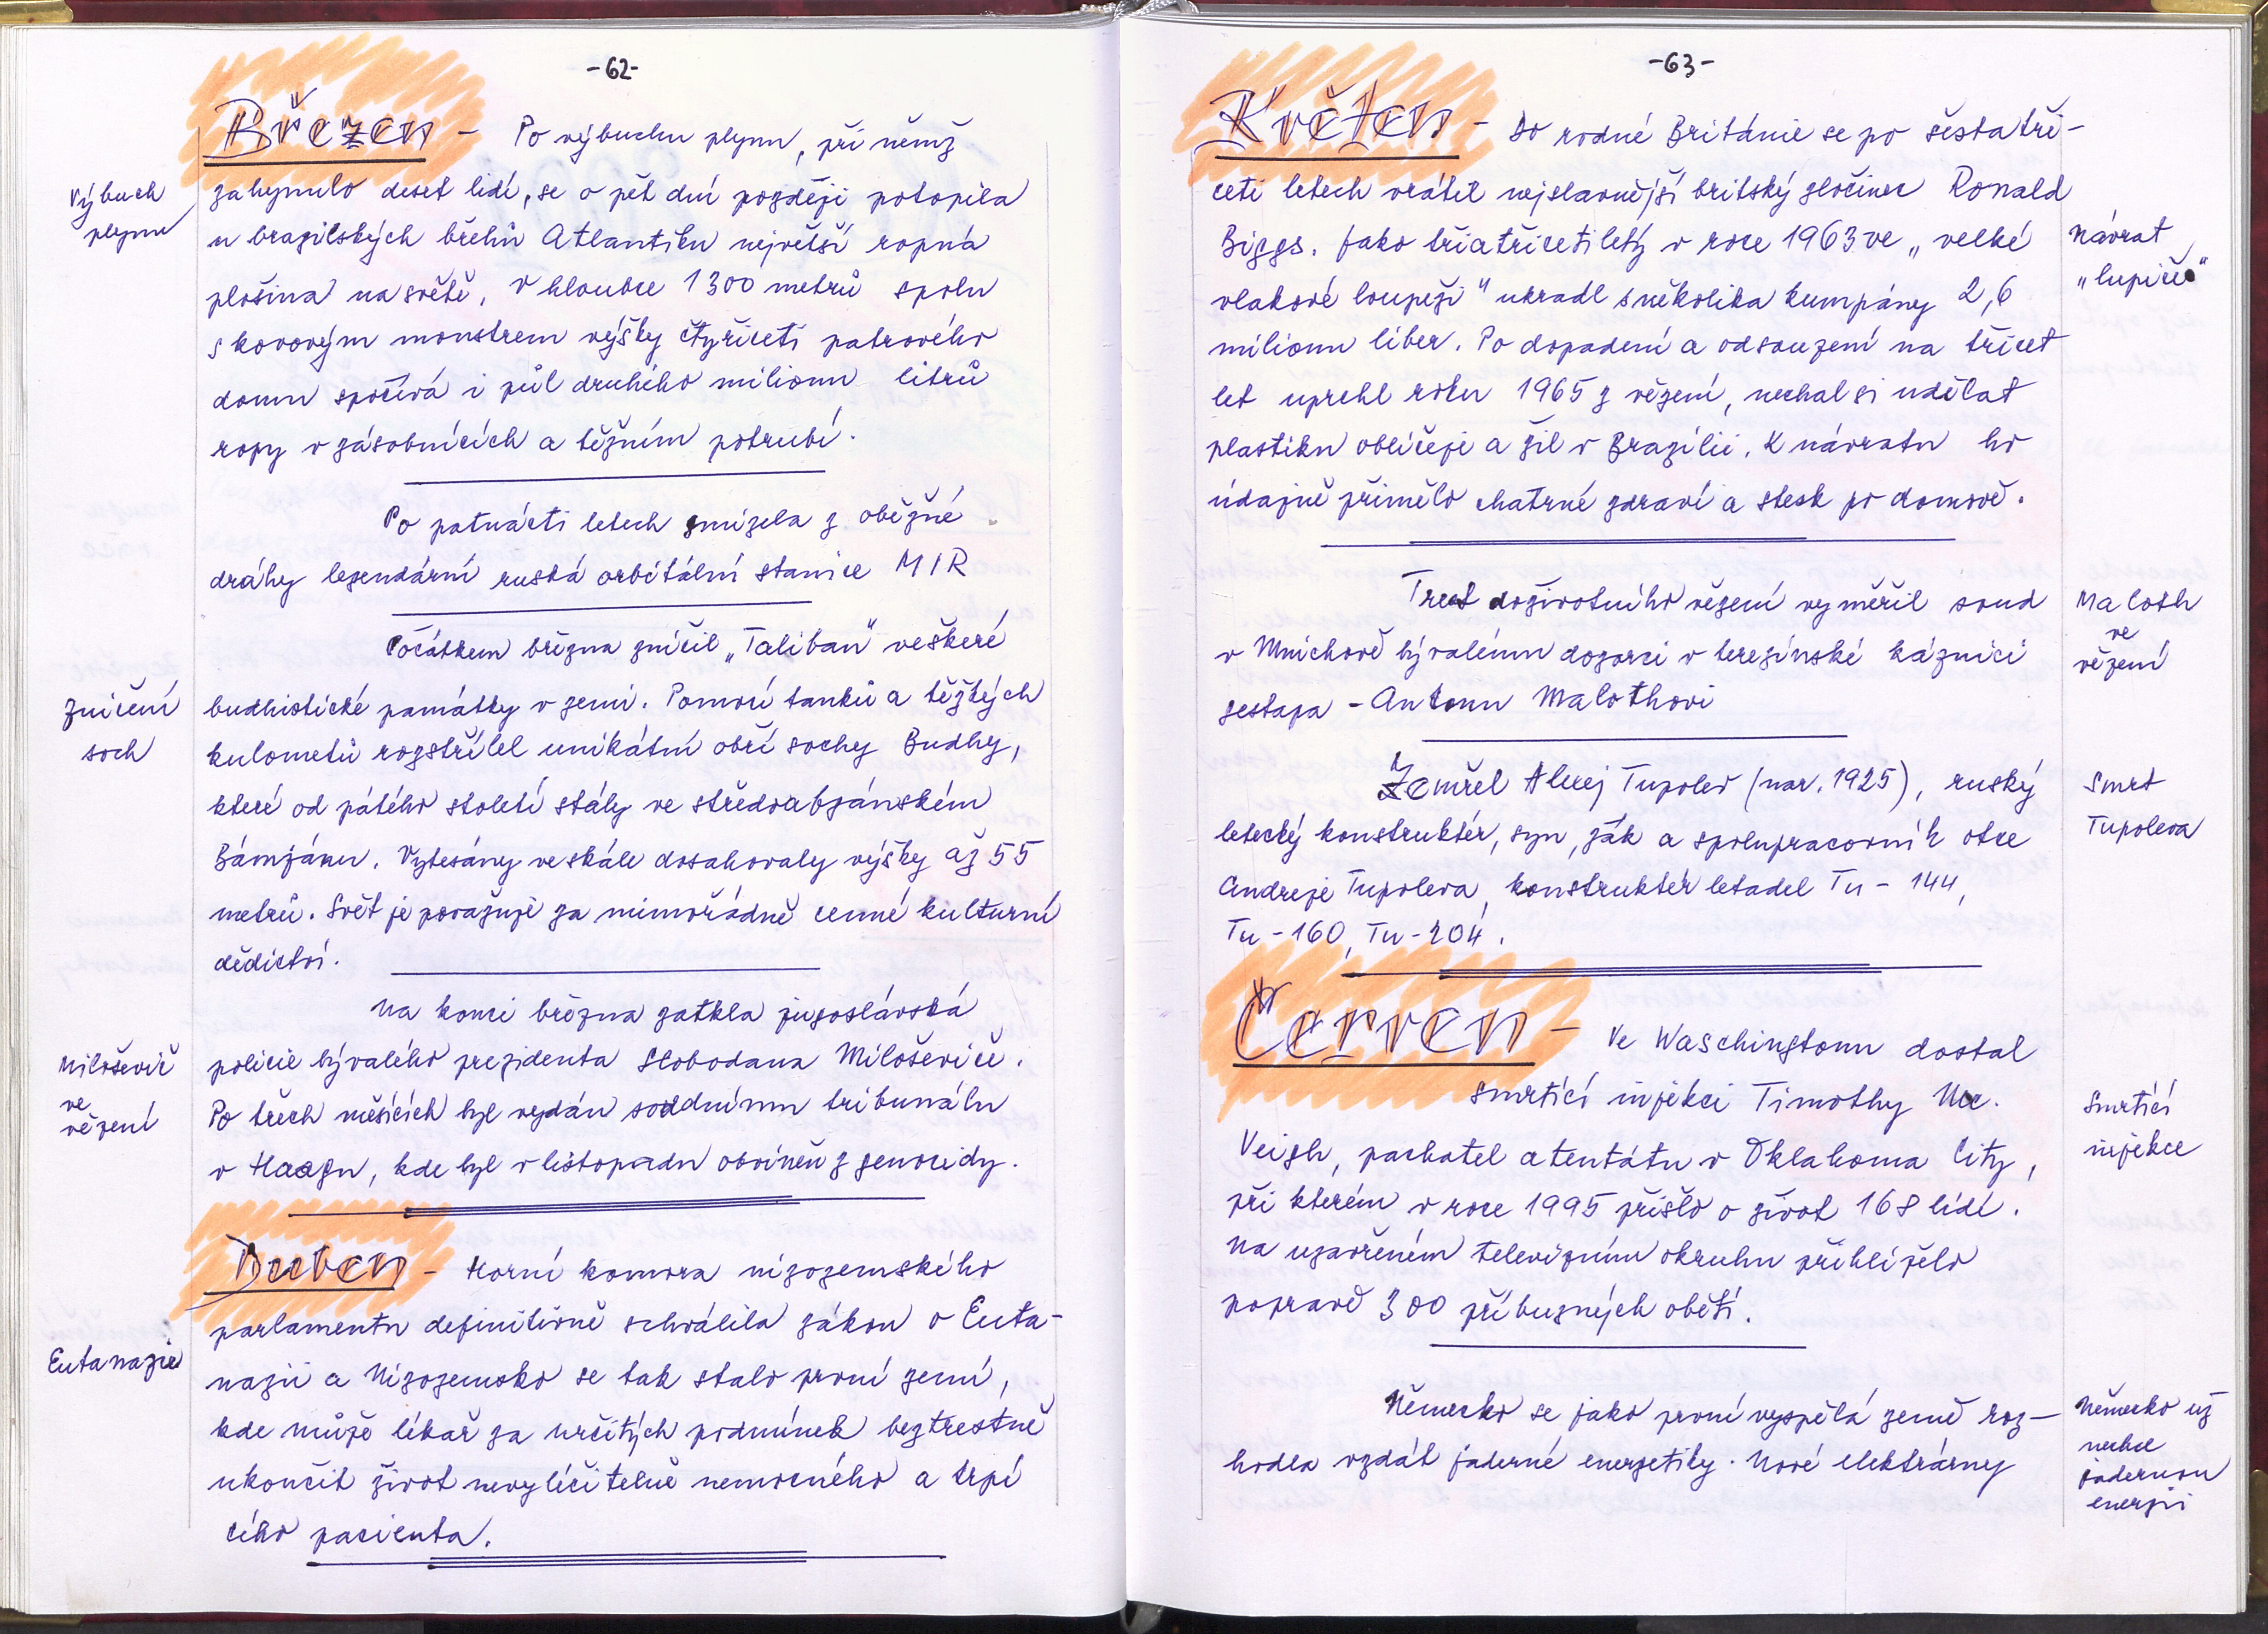 -62-
Březen - Po výbuchu plynu, při němž
Výbuch
plynu
zahynulo deset lidí, se o pět dní později potopila
u brazilských břehů Atlantiku největší ropná
plošina na světě. V hloubce 1300 metrů spolu
s kovovým monstrem výšky čtyřiceti patrového
domu spočívá i půl druhého milionu litrů
ropy v zásobnících a těžním potrubí.
Po patnácti letech zmizela z oběžné
dráhy legendární ruská orbitální stanice MIR
Počátkem března zničil „Taliban" veškeré
Zničení
soch
budhistické památky v zemi. Pomocí tanků a těžkých
kulometů rozstřílel unikátní obří sochy Budhy,
které od pátého století stály ve středoabgánském
Bámjánu. Vytesány ve skále dosahovaly výšky až 55
metrů. Svět je považuje za mimořádně cenné kulturní
dědictví.
Na konci března zatkla jugoslávská
Miloševič
ve
vězení
policie bývalého prezidenta Slobodana Miloševiče.
Po třech měsících byl vydán soudnímu tribunálu
v Haagu, kde byl v listopadu obviněn z genocidy.
Duben - Horní komora nizozemského
parlamentu definitivně schválila zákon o Euta-
Eutanazie
nazii a Nizozemsko se tak stalo první zemí,
kde může lékař za určitých podmínek beztrestně
ukončit život nevyléčitelně nemocného a trpí
cího pacienta.
-63-
Květen - Do rodné Británie se po šestatři-
ceti letech vrátil nejslavnější britský zločinec Ronald
Návrat
„lupiče"
Biggs. Jako třiatřicetiletý v roce 1963 ve „velké
vlakové loupeži" ukradl s několika kumpány 2,6
milionu liber. Po dopadení a odsouzení na třicet
let uprchl roku 1965 z vězení, nechal si udělat
plastiku obličeje a žil v Brazílii. K návratu ho
údajně přimělo chatrné zdraví a stesk po domově.
Trest doživotního vězení vyměřil soud
Maloth
ve
vězení
v Mnichově bývalému dozorci v terezínské káznici
gestapa - Antonu Malothovi
Zemřel Alexej Tupolev (nar. 1925), ruský
Smrt
Tupoleva
letecký konstruktér, syn, žák a spolupracovník otce
Andreje Tupoleva, konstruktér letadel Tu - 144,
Tu - 160, Tu - 204.
Červen - Ve Waschingtonu dostal
smrtící injekci Timothy Mc.
Smrtící
injekce
Veigh, pachatel atentátu v Oklahoma City,
při kterém v roce 1995 přišlo o život 168 lidí.
Na uzavřeném televizním okruhu přihlíželo
popravě 300 příbuzných obětí.
Německo se jako první vyspělá země roz-
Německo už
nechce
jadernou
energii
hodla vzdát jaderné energetiky. Nové elektrárny